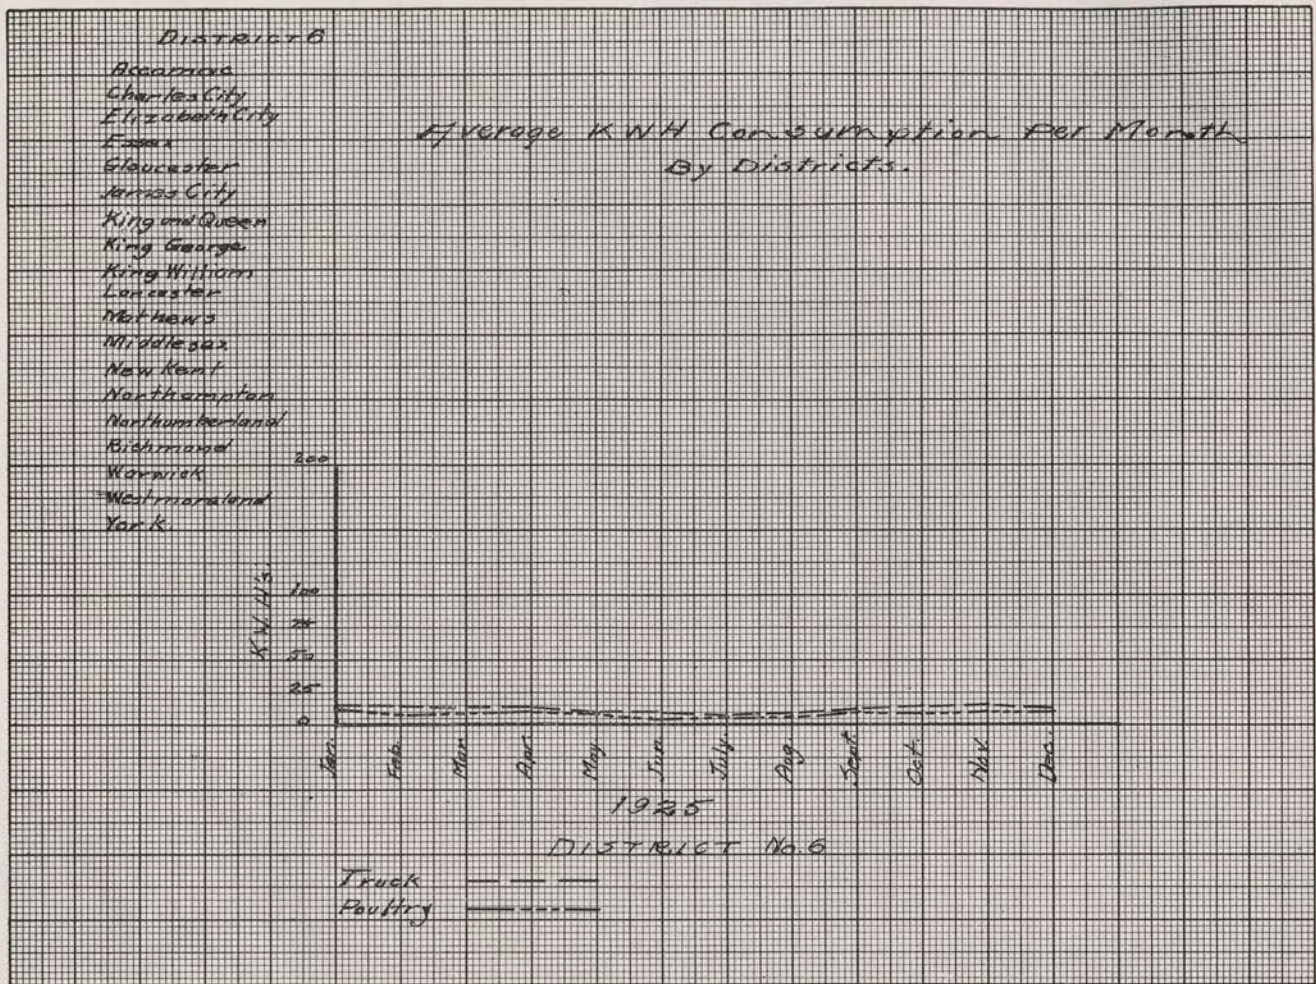 DISTRICT 6
Accamore
Charles City
Elizabeth City
Essex
Gloucester
James City
King and Queen
King George
King William
Lancaster
Mathews
Middlesex
New Kent
Northampton
Northumberland
Richmond
Warwick
Westmoreland
York.
Average KWH Consumption Per Month
By Districts.
K.W.H's.
200
100
75
50
25
0
Jan.
Feb.
Mar.
Apr.
May
Jun.
July
Aug.
Sept.
Oct.
Nov.
Dec.
1925
DISTRICT No. 6
Truck
Poultry